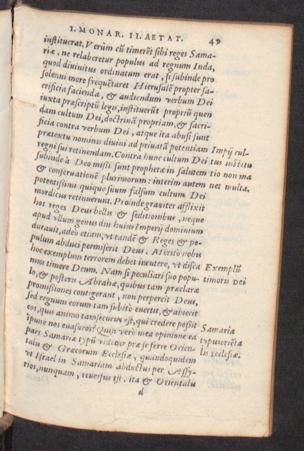 I. MONAR. II. AETAT. 49
instituerat. Verùm cū timerēt sibi reges Sama-
riæ, ne relaberetur populus ad regnum Iuda,
quod diuinitus ordinatum erat, si subinde pro
solenni more frequētaret Hierusalē propter sa-
crificia facienda, & audiendum verbum Dei
iuxta præscriptū legis, instituerūt propriū quen
dam cultum Dei, doctrinā propriam, & sacri-
ficia contra verbum Dei, atque ita abusi sunt
prætextu nominis diuini ad priuatā potentiam
regni sui retinendam. Contra hunc cultum Dei
subinde à Deo missi sunt prophetæ in salutem
& conseruationē plurimorum: interim autem
potentissimi quique suum falsum cultum Dei
mordicus retinuerunt. Proinde grauiter afflixit
hos reges Deus bellis & seditionibus, neque
apud vllum genus diu huius Imperij dominium
durauit, adeò etiam, vt tandē & Reges & po-
pulum abduci permiserit Deus.
hoc exemplum terrorem debet incutere, vt disca
mus timere Deum. Nam si peculiari suo popu-
lo, & posteris Abrahæ, quibus tam præclaræ
promissiones contigerant, non pepercit Deus,
sed regnum eorum tam subitò euertit, & abiecit
eos, quis animo tam securus est, qui credere possit
ipsum nos euasuros? Quin verò mea opinione ea
pars Samaria typū videtur præ se ferre Orien-
talis & Græcorum Ecclesiæ, quandoquidem
vt Israel in Samariam abductus per Assy-
rios, nunquam reuersus est, ita & Orientalis
d
Impij cul-
tus institu
tio non ma
net multa.
Exemplū
timoris Dei
Samaria
typus oriēta
lis Ecclesiæ.